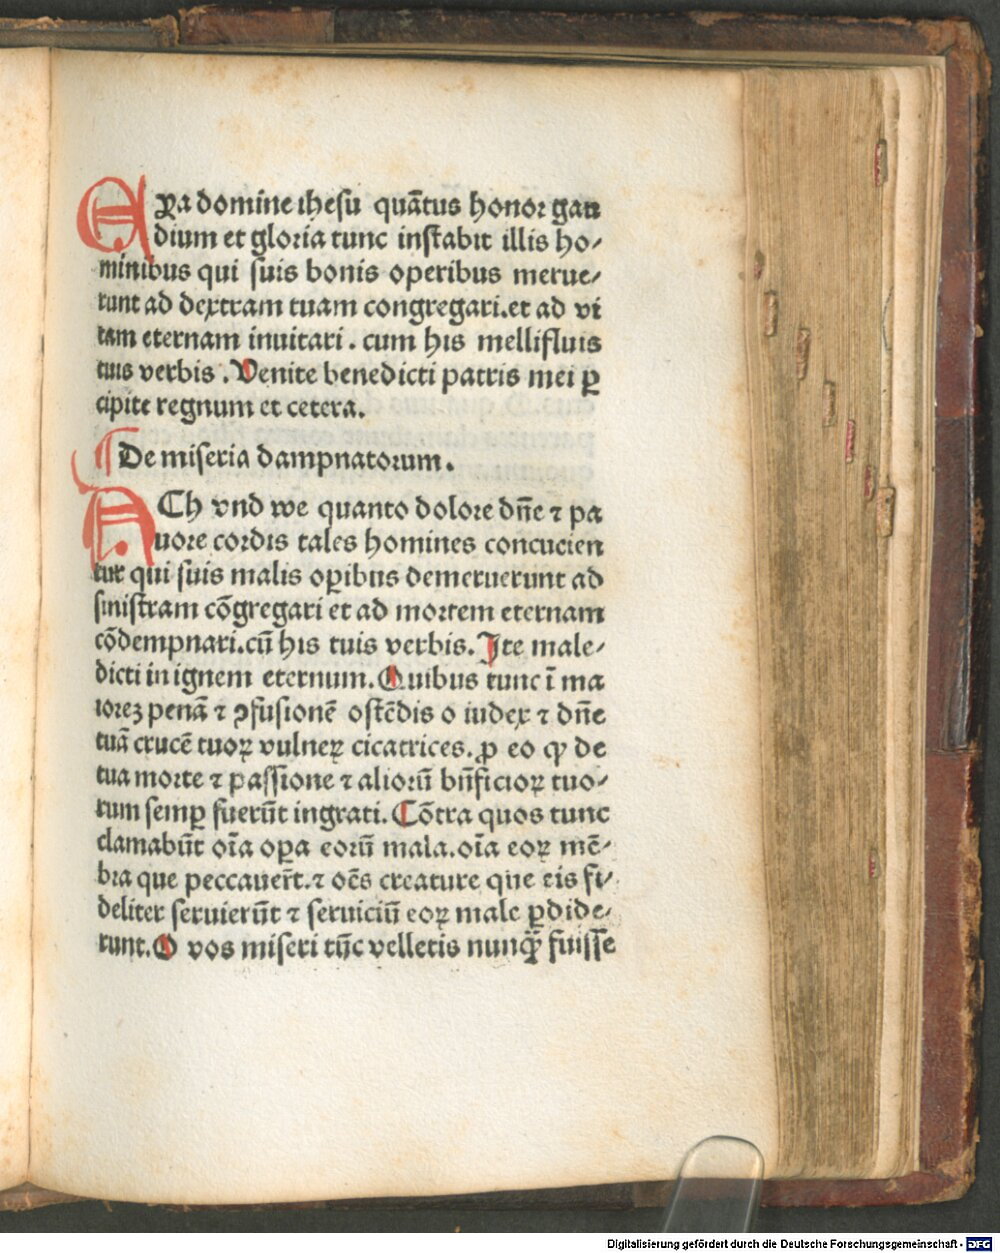 Eya domine ihesu quātus honor gau
dium et gloria tunc instabit illis ho-
minibus qui suis bonis operibus merue-
runt ad dextram tuam congregari.et ad vi
tam eternam inuitari. cum his mellifluis
tuis verbis. Venite benedicti patris mei ꝑ
cipite regnum et cetera.
De miseria dampnatorum.
ACh vnd we quanto dolore dn̄e ⁊ pa
uore cordis tales homines concucien
tur qui suis malis oꝑibus demeruerunt ad
sinistram cōgregari et ad mortem eternam
cōdempnari.cū his tuis verbis. Ite male-
dicti in ignem eternum. Quibus tunc ī ma
iorez penā ⁊ ꝯfusionē ostēdis o iudex ⁊ dn̄e
tuā crucē tuoꝝ vulneꝝ cicatrices. ꝓ eo ꝙ de
tua morte ⁊ passione ⁊ aliorū bn̄ficioꝝ tuo-
rum semꝑ fuerūt ingrati. Cōtra quos tunc
clamabūt oīa oꝑa eorū mala.oīa eoꝝ mē-
bra que peccauer̄t.⁊ oēs creature que eis fi-
deliter seruierūt ⁊ seruiciū eoꝝ male ꝑdide-
runt. O vos miseri tūc velletis nunꝙ̄ fuisse
Digitalisierung gefördert durch die Deutsche Forschungsgemeinschaft - DFG